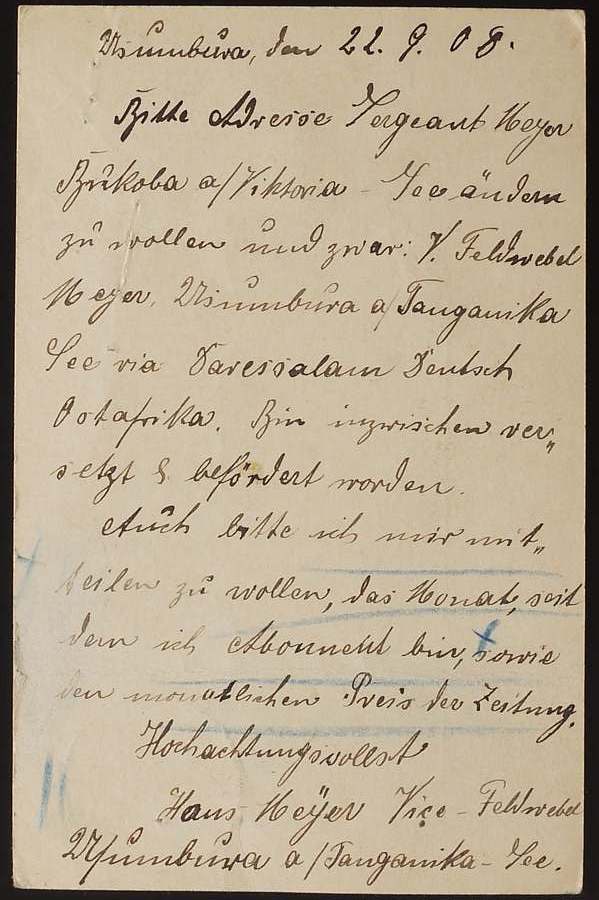 Usumbura, den 22. 9. 08.
Bitte Adresse Sergeant Meyer
Bukoba a/Viktoria-See ändern
zu wollen und zwar: V. Feldwebel
Meyer, Usumbura a/Tanganika
See via Daressalam Deutsch
Ostafrika. Bin inzwischen ver„
setzt & befördert worden.
Auch bitte ich mir mit„
teilen zu wollen, das Monat, seit
dem ich Abonnent bin, sowie
den monatlichen Preis der Zeitung.
Hochachtungsvollst
Hans Meÿer Vice-Feldwebel
Usumbura a/Tanganika-See.